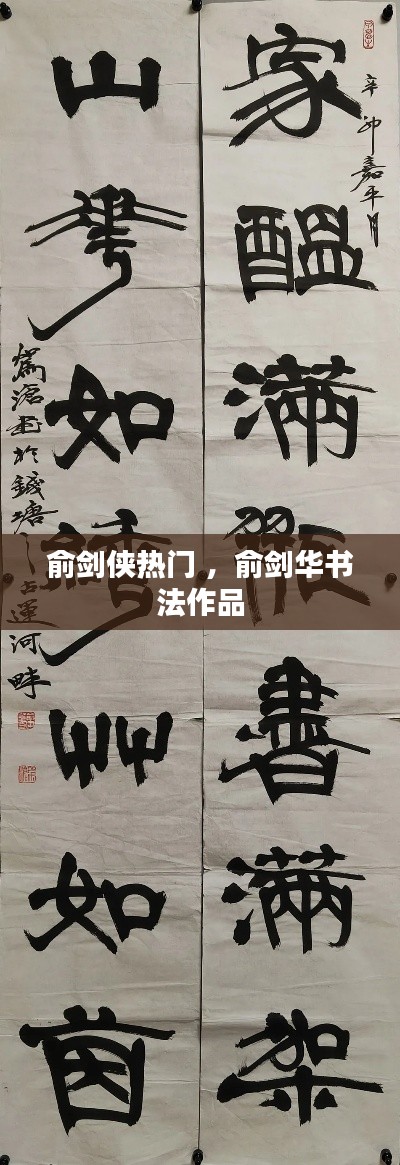 辛卯嘉平月
家醖滿瓶書滿架
山華如繡艸如茵
書於錢塘之古運河畔
俞剑侠热门 ，俞剑华书
法作品